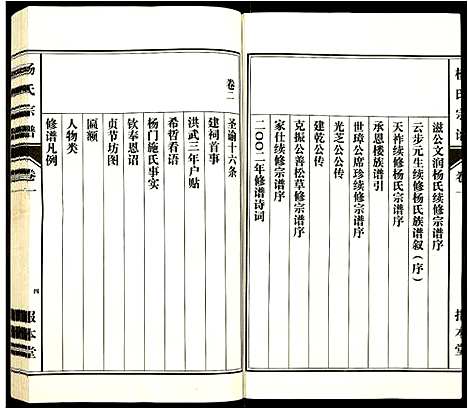 杨氏宗谱
卷一
报本堂
滋公文润杨氏续修宗谱序
云步元生续修杨氏族谱叙（序）
天祚续修杨氏宗谱序
承恩楼族谱引
世璋公席珍续修宗谱序
光芝公传
建乾公传
克振公善松草修宗谱序
家仕续修宗谱序
二〇〇二年修谱诗词
卷二
圣谕十六条
建祠首事
洪武三年户贴
希哲看语
杨门施氏事实
钦奉恩诏
贞节坊图
匾额
人物类
修谱凡例
杨氏宗谱
卷一
四
报本堂